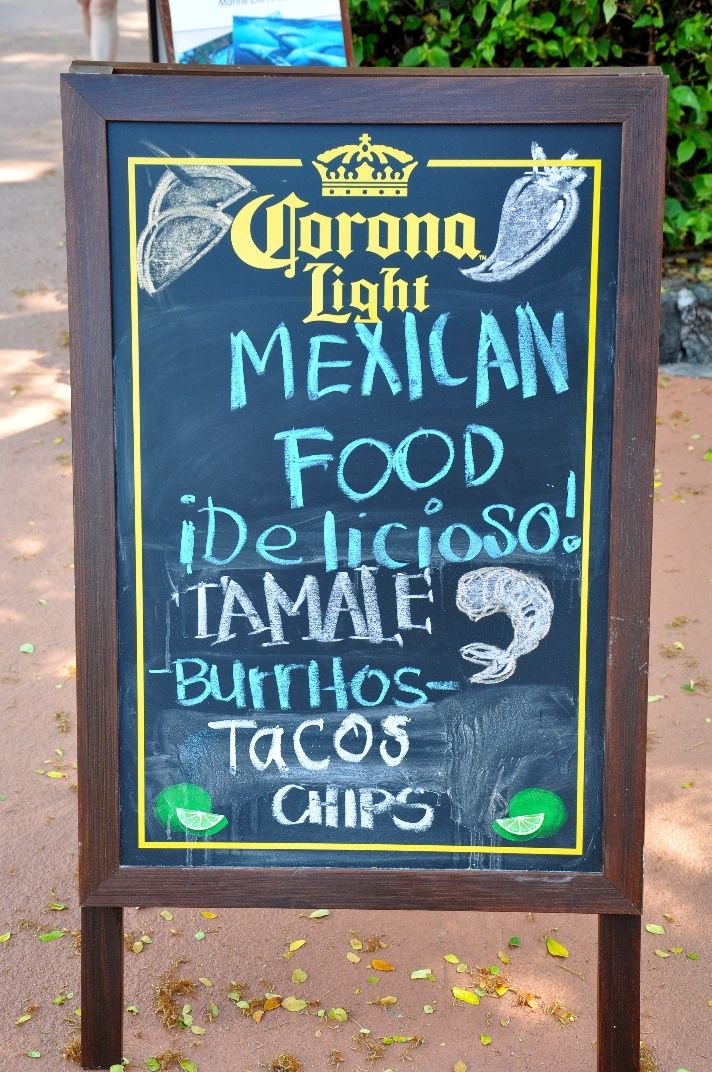 Marine Life
Corona
Light
MEXICAN
FOOD
¡Delicioso!
TAMALE
-Burritos-
Tacos
CHIPS